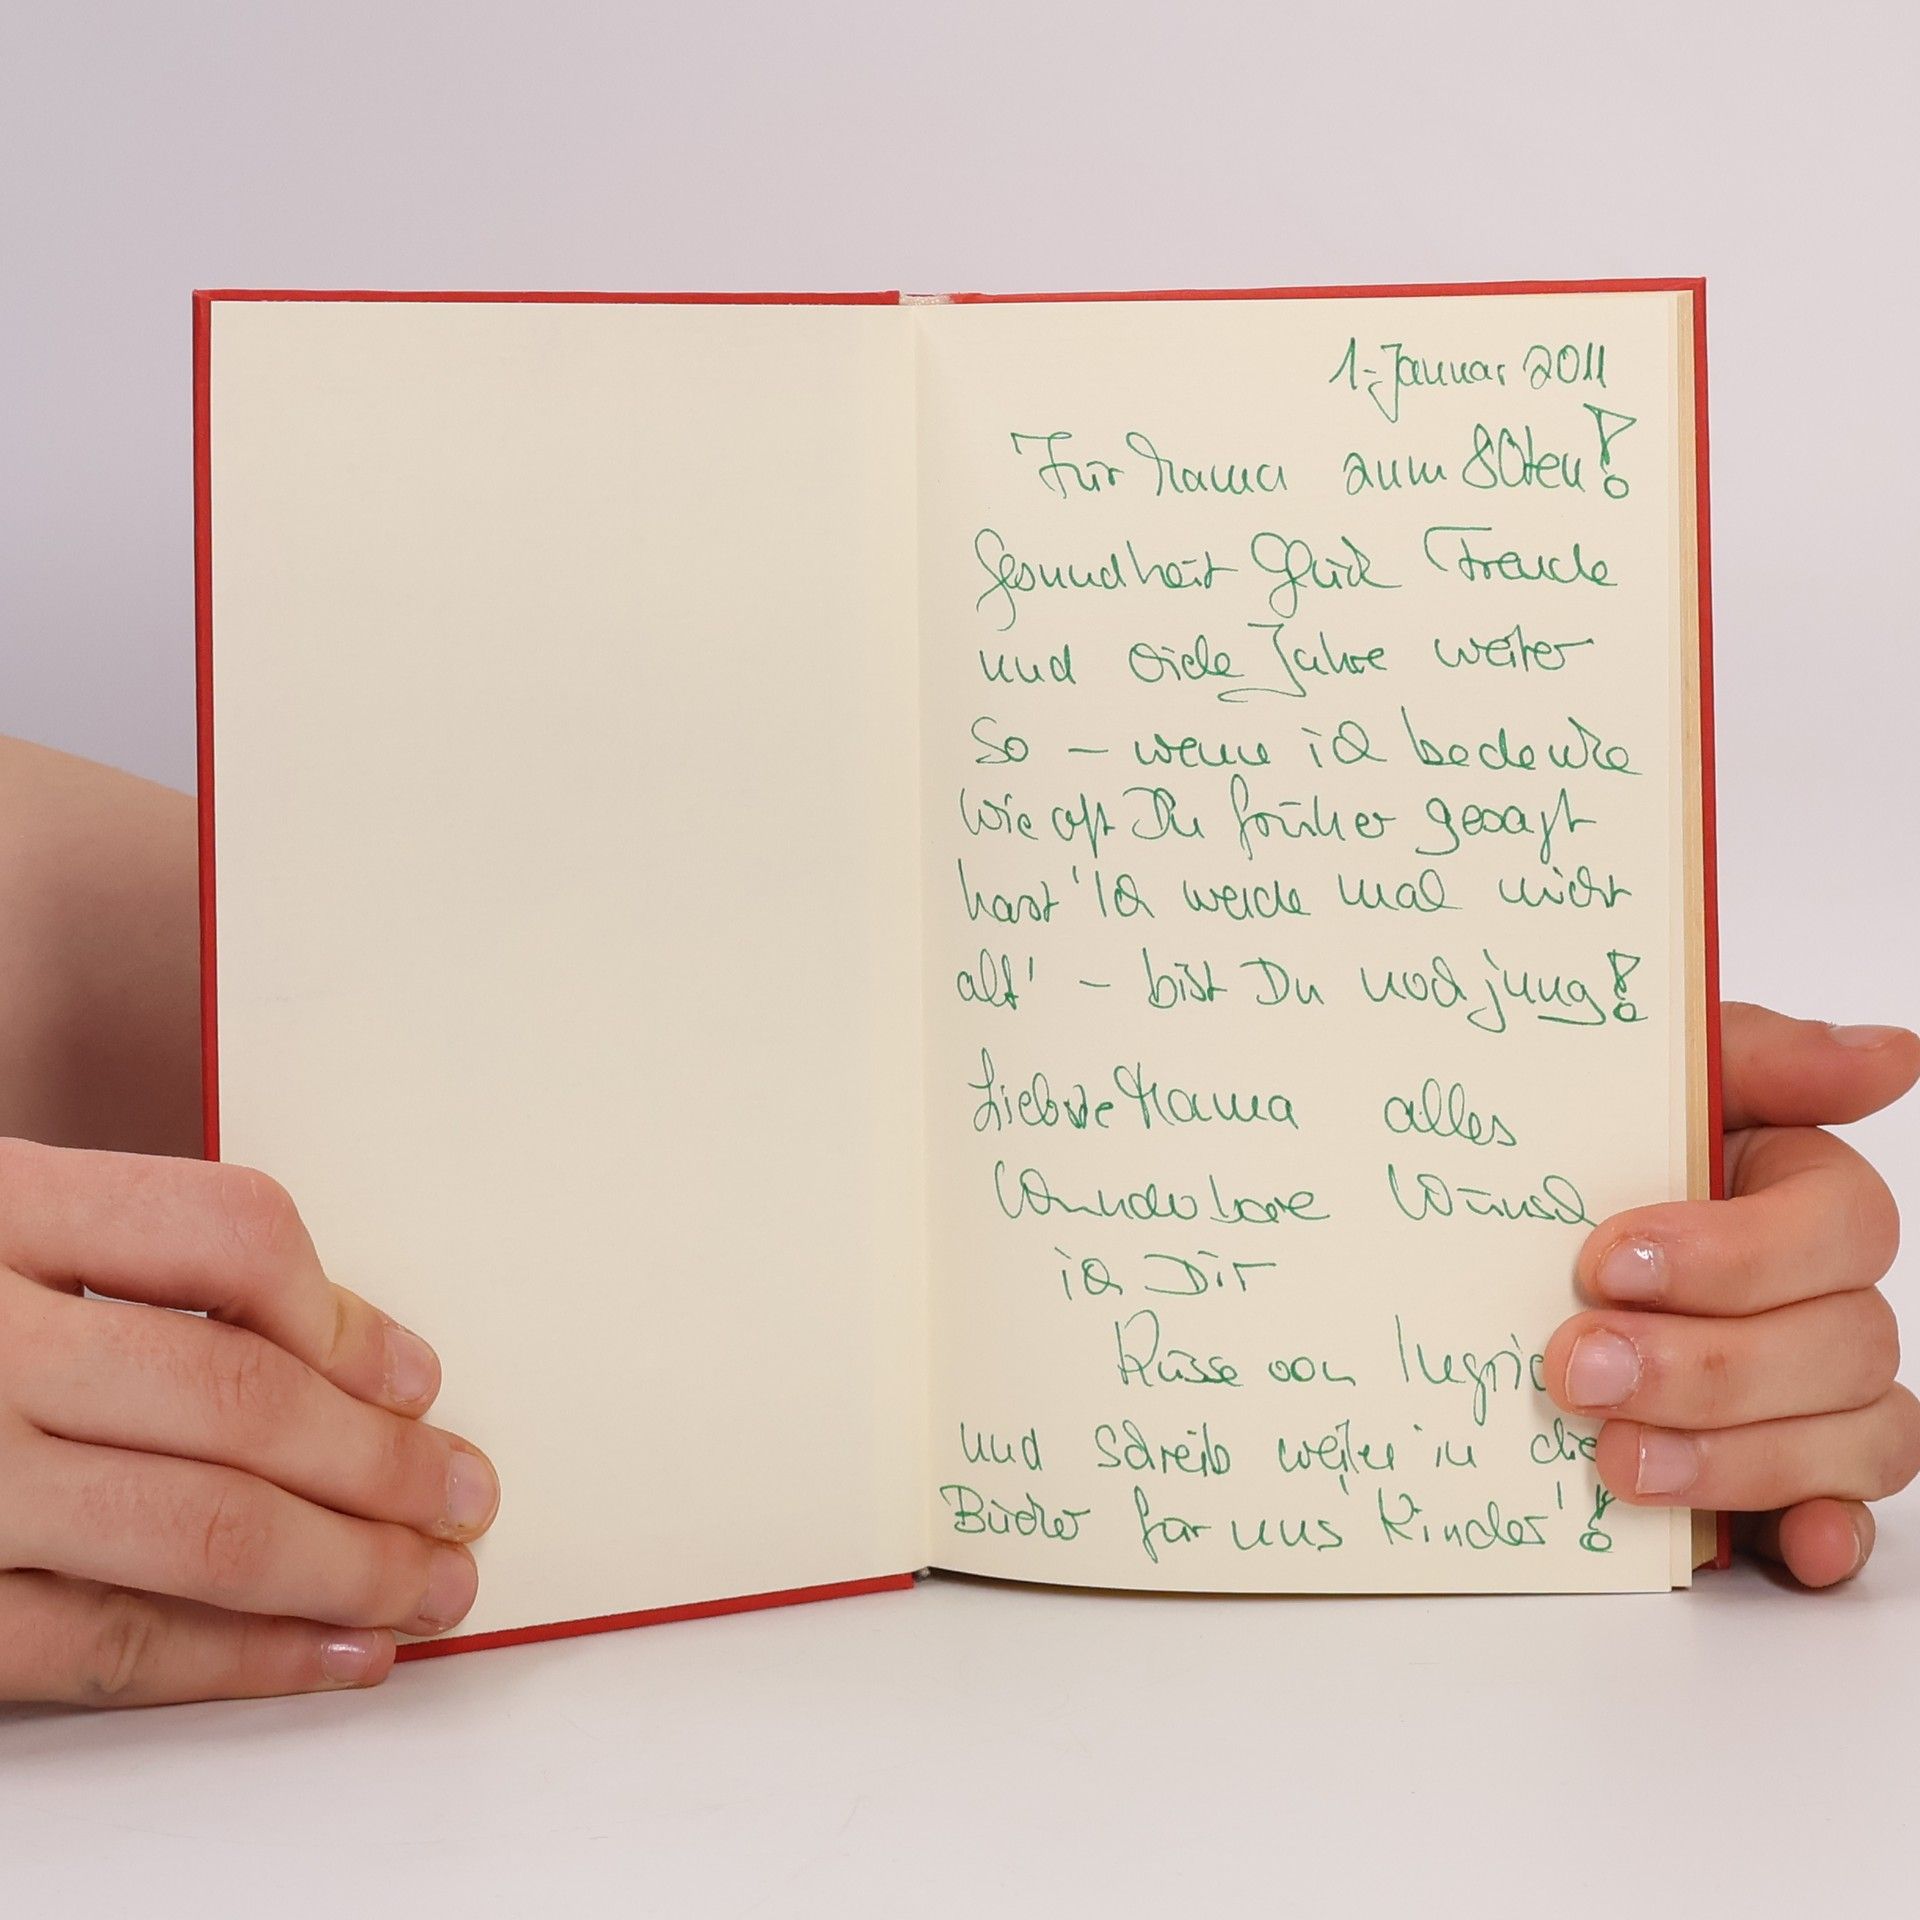 1. Januar 2011
Für Mama zum 80ten!
Gesundheit Glück Freude
und viele Jahre weiter
so – wenn ich bedenke
wie oft Du früher gesagt
hast 'Ich werde mal nicht
alt' – bist Du noch jung!
Liebste Mama alles
Wunderbare Wünsch
ich Dir
Küsse von Ingrid
und schreib weiter in die
Bücher für uns 'Kinder'!